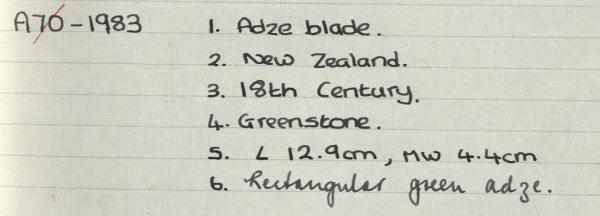 A70-1983 1. Adze blade.
2. New Zealand.
3. 18th Century.
4. Greenstone.
5. L 12.9cm, MW 4.4cm
6. Rectangular green adze.